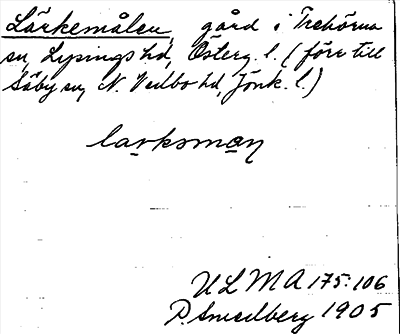 Lärkemålen, gård i Trehörna
sn, Lysings hd, Österg. l. (förr till
Säby sn, N. Vedbo hd, Jönk. l.)
larksmon
ULMA 175:106
P. Smedberg 1905